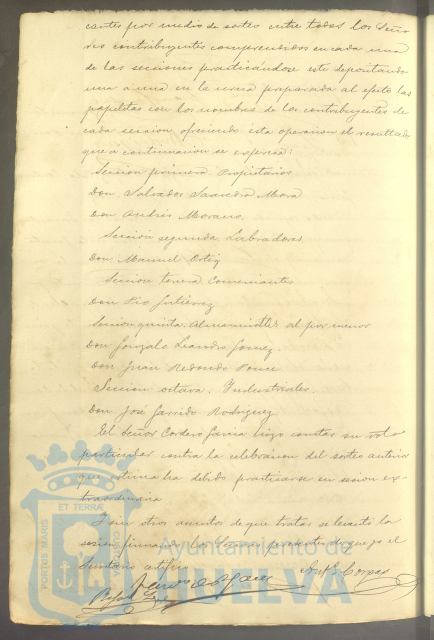 cantes por medio de sorteo entre todos los Seño
res contribuyentes comprendidos en cada una
de las secciones practicándose este depositando
una a una en la urna preparada al efecto las
papeletas con los nombres de los contribuyentes de
cada seccion, ofreciendo esta operacion el resultado
que a continuacion se expresa:
Seccion primera Propietarios
Don Salvador Saavedra Mora
Don Andrés Moreno
Sección segunda Labradores
Don Manuel Ortiz
Seccion tercera Comerciantes
Don Pio Gutierrez
Seccion quinta. al por menor
Don Gonzalo Leandro Gomez
Don Juan Redondo Ponce
Seccion octava. Industriales
Don José Garrido Rodriguez
El Señor Cordero Garcia hizo constar su voto
particular contra la celebracion del sorteo anterior
que estima ha debido practicarse en sesion ex-
traordinaria
I sin otros asuntos de que tratar se levantó la
sesion firmando los Señores presentes de que yo el
Secretario certifico
PORTUS MARIS ET TERRÆ CUSTODIO
Ayuntamiento de
HUELVA